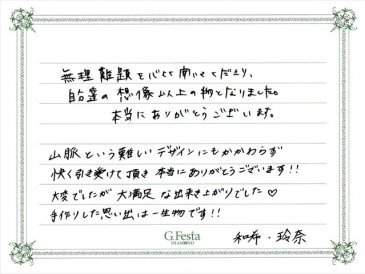 無理難題を心よく聞いてくださり、
自分達の想像以上の物となりました。
本当にありがとうございます。
山脈という難しいデザインにもかかわらず
快く引き受けて頂き本当にありがとうございます!!
大変でしたが大満足な出来き上がりでした♡
手作りした思い出は一生物です!!
G.Festa
DIAMOND
和希・玲奈